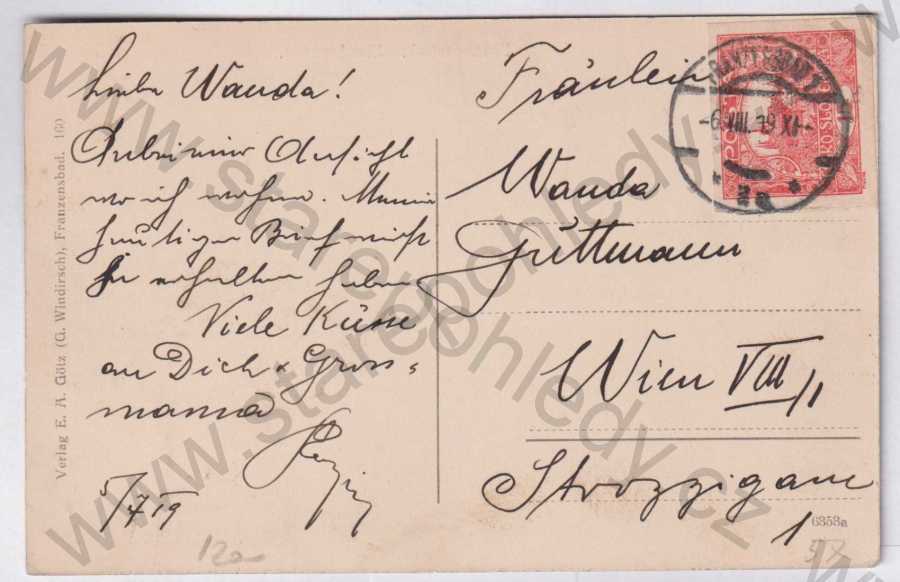 Liebe Wanda!
Anbei eine Ansicht
wo ich wohne. Meinen
heutigen Brief wirst
Du erhalten haben
Viele Küsse
an Dich u Gross-
mama
5/7 19
Fräulein
Wanda
Guttmann
Wien VIII/1
Strozzigasse
1
6353a
12a
Verlag E. A. Götz (G. Windirsch), Franzensbad. 160
www.starepohledy.cz